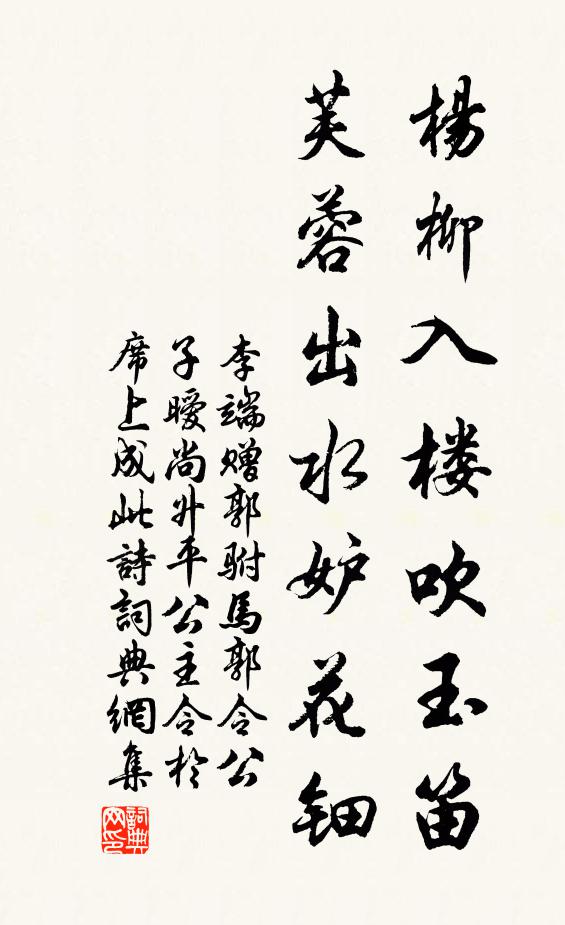 楊柳入楼吹玉笛
芙蓉出水妒花钿
李端赠郭驸馬郭令公
子曖尚升平公主令於
席上成此詩詞典網集
詞典
网印